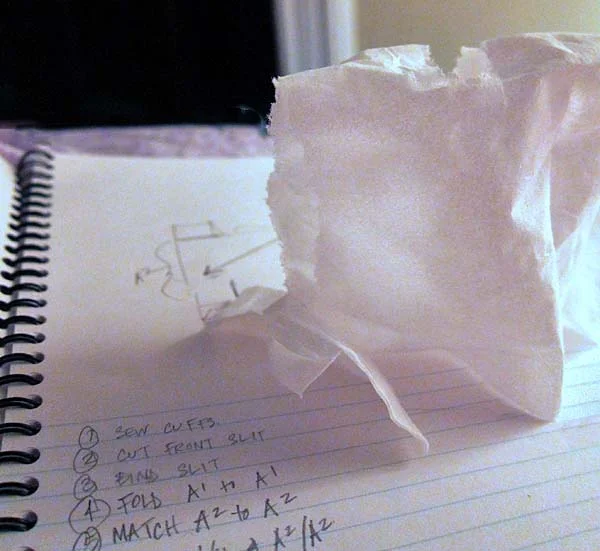 ① SEW CUFFS.
② CUT FRONT SLIT
③ BIND SLIT
④ FOLD A¹ to A¹
⑤ MATCH A² to A²
A²/A²